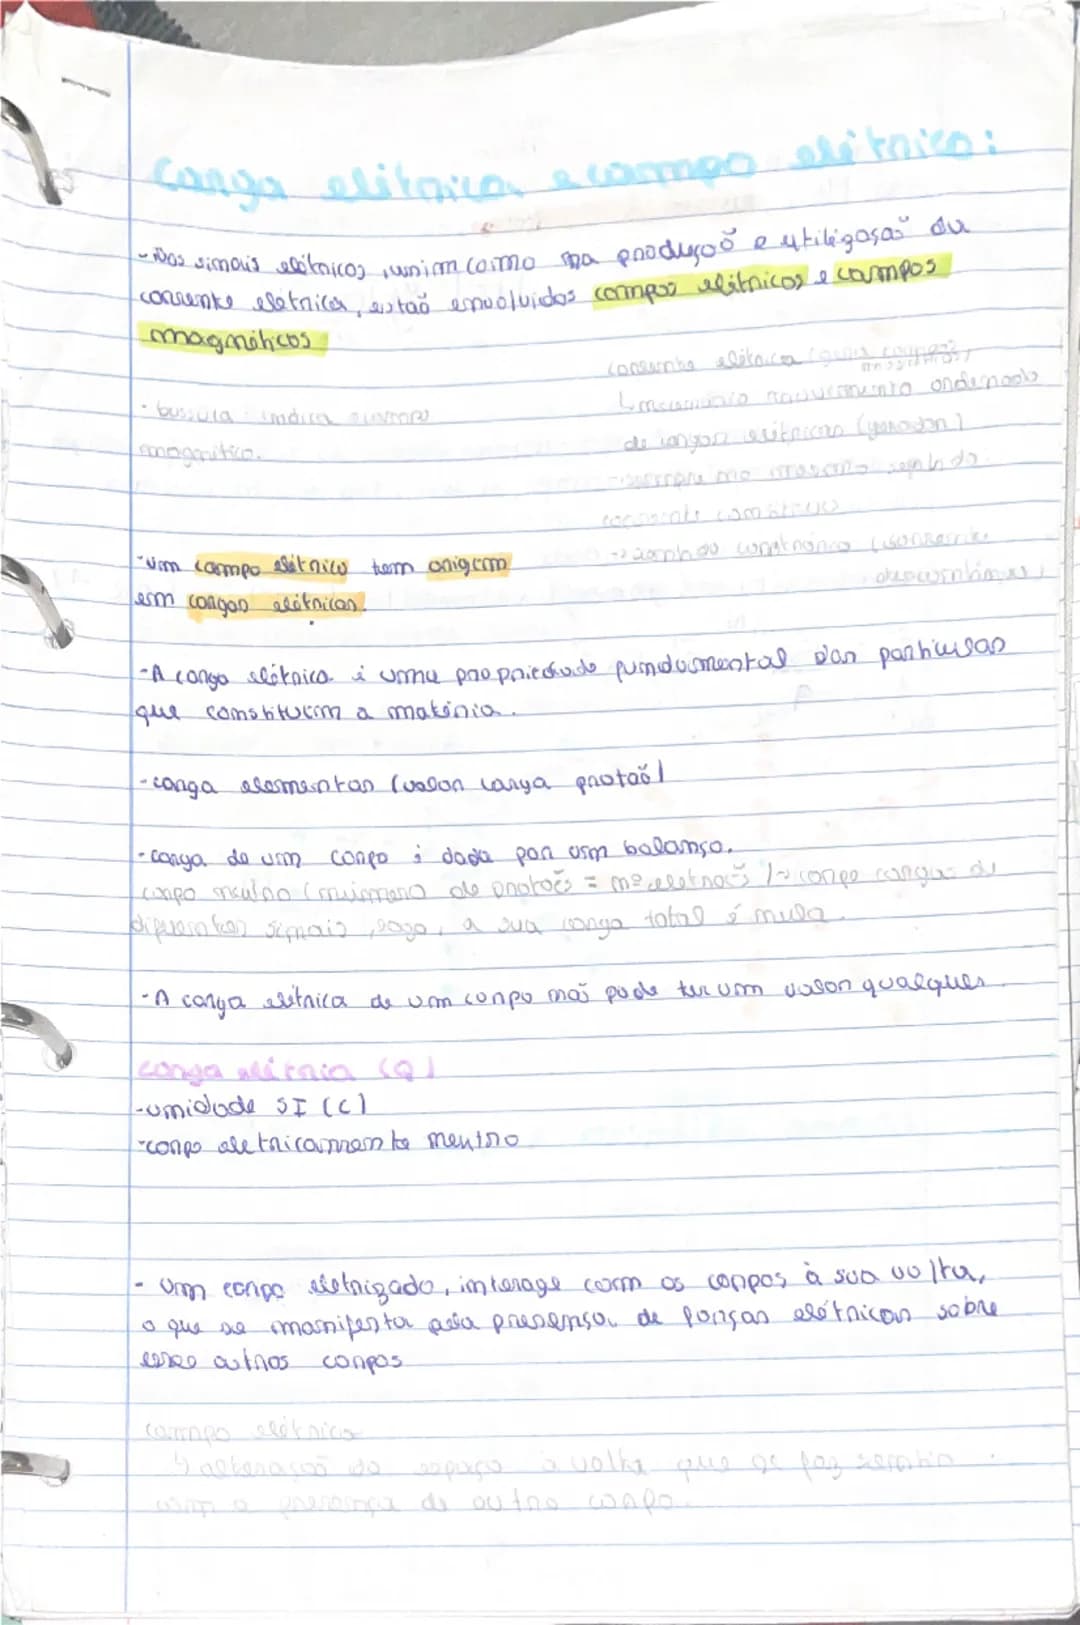 Carga elétrica e campo elétrico:
- Nos sinais elétricos, assim como na produção e utilização da
corrente elétrica, estão envolvidos campos elétricos e campos
magnéticos
corrente elétrica
movimento ordenado
- bussula indica sempre
de cargas elétricas (gerador)
magnético.
- sempre no mesmo sentido:
corrente contínua
- um campo elétrico tem origem
em cargas elétricas.
- A carga elétrica é uma propriedade fundamental das particulas
que constituem a matéria.
- carga elementar (valor carga protão)
- carga de um corpo é dada por um balanço.
corpo neutro (número de protões = nº eletrões) -> corpo cargas de
diferentes sinais, logo, a sua carga total é nula.
- A carga elétrica de um corpo não pode ter um valor qualquer
carga elétria (Q)
- unidade SI (C)
- corpo eletricamente neutro
- Um corpo eletrizado, interage com os corpos à sua volta,
o que se manifesta pela presença de forças elétricas sobre
esses outros corpos
campo elétrico
↳ alteração do espaço à volta que se faz sentir
com a presença de outro corpo.